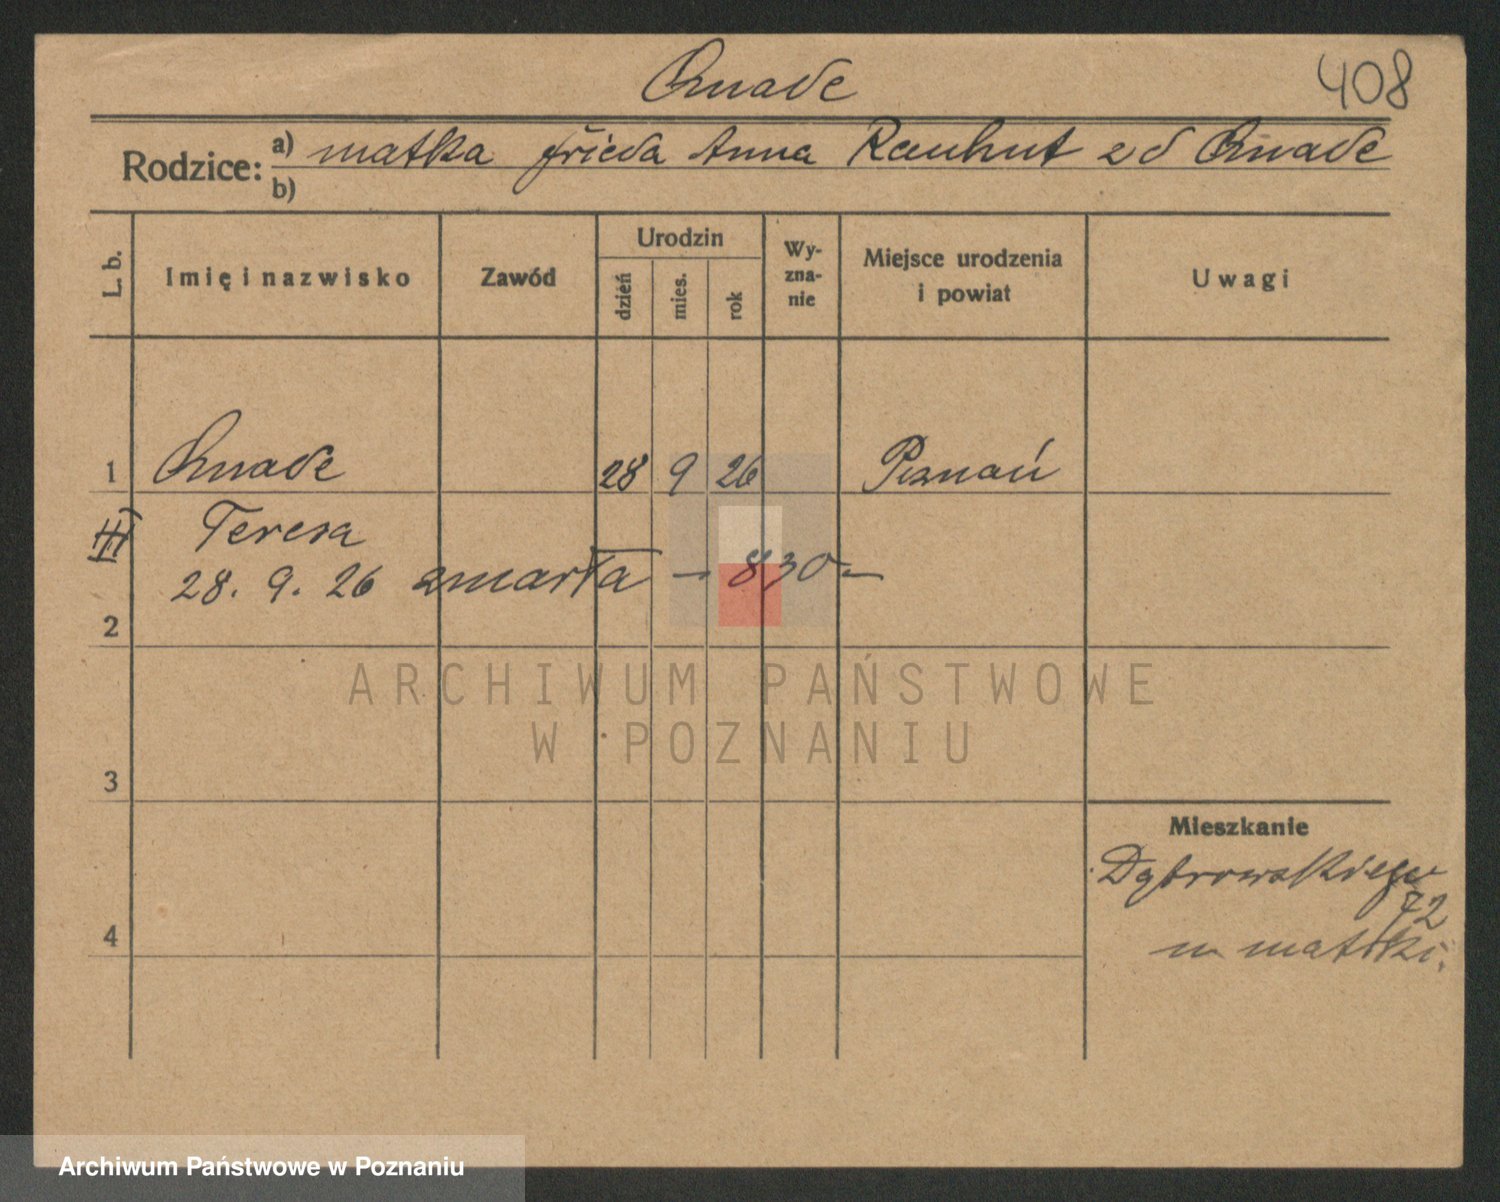 Quade
408
Rodzice:
a) matka Frieda Anna Rauhut zd Quade
b)
L. b.
Imię i nazwisko
Zawód
Urodzin
dzień
mies.
rok
Wy-
zna-
nie
Miejsce urodzenia
i powiat
Uwagi
1 Quade 28 9 26 Poznań
III Teresa
28. 9. 26 zmarła - 830 -
2
3
4
Mieszkanie
Dąbrowskiego
72
u matki.
ARCHIWUM PAŃSTWOWE
W POZNANIU
Archiwum Państwowe w Poznaniu